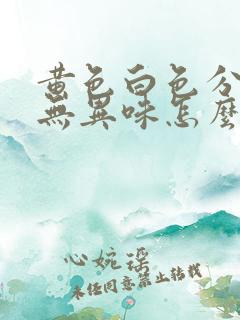 黄色白色分
無異味怎麼
心婉謠
未经同意禁止转载